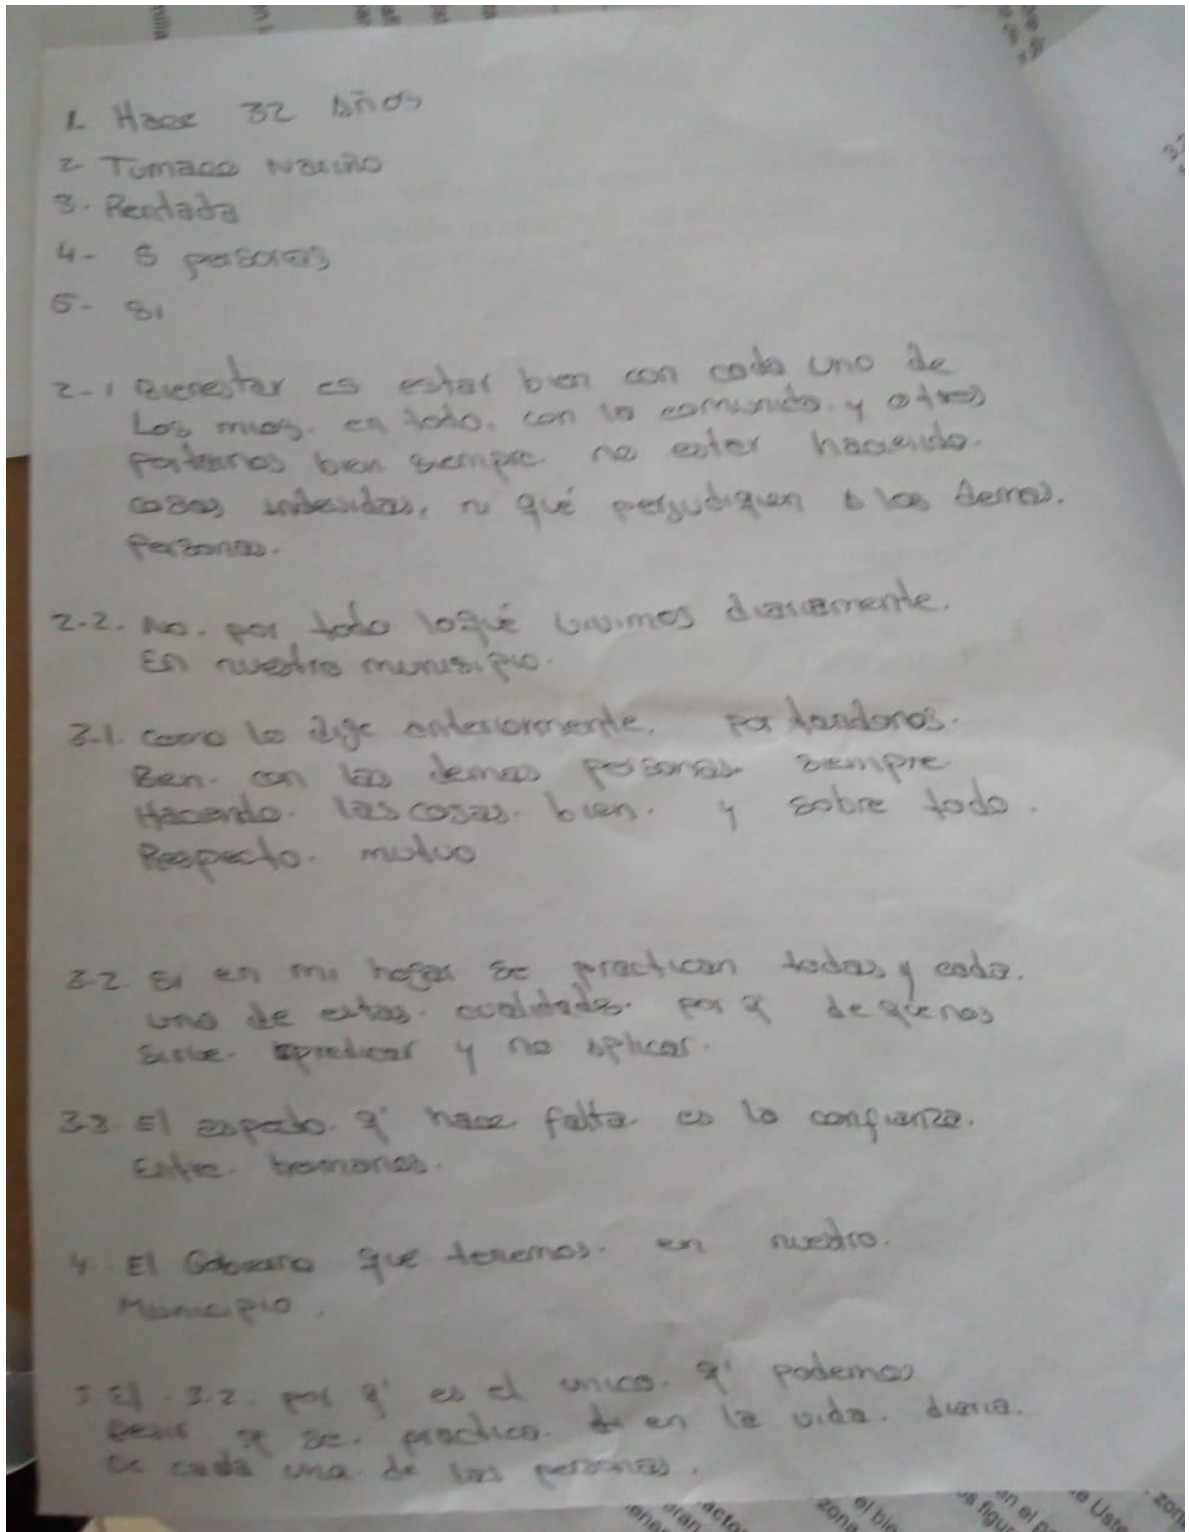 1. Hace 32 Años
2. Tumaco Nariño
3. Rentada
4- 5 personas
5- Si
2-1 Bienestar es estar bien con cada uno de
Los mios. en todo. con la comunida. y otros
Portarnos bien siempre. no estar haciendo.
cosas indevidas, ni qué perjudiquen a las demas.
Personas.
2-2. No. por todo loqué vivimos diariamente.
En nuestro munisipio.
3.1. como lo dije anteriormente. portandonos.
Bien. con las demas personas siempre
Haciendo. las cosas. bien. y sobre todo.
Respecto. mutuo
3.2. Si en mi hogar se practican todas y cada.
una de estas. cualidades. por q de qúe nos
Sirve. predicar y no aplicar.
3.3. El aspecto. q' hace falta es la confianza.
Entre. hermanos.
4. El Gobierno que tenemos. en nuestro.
Municipio.
5. El. 3.2. por q' es el unico. q' podemos
Desir q se. practica. en la vida. diaria.
De cada una de las personas.
en el p
e Uste
s figu
el bie
zona
acto
aran
zon